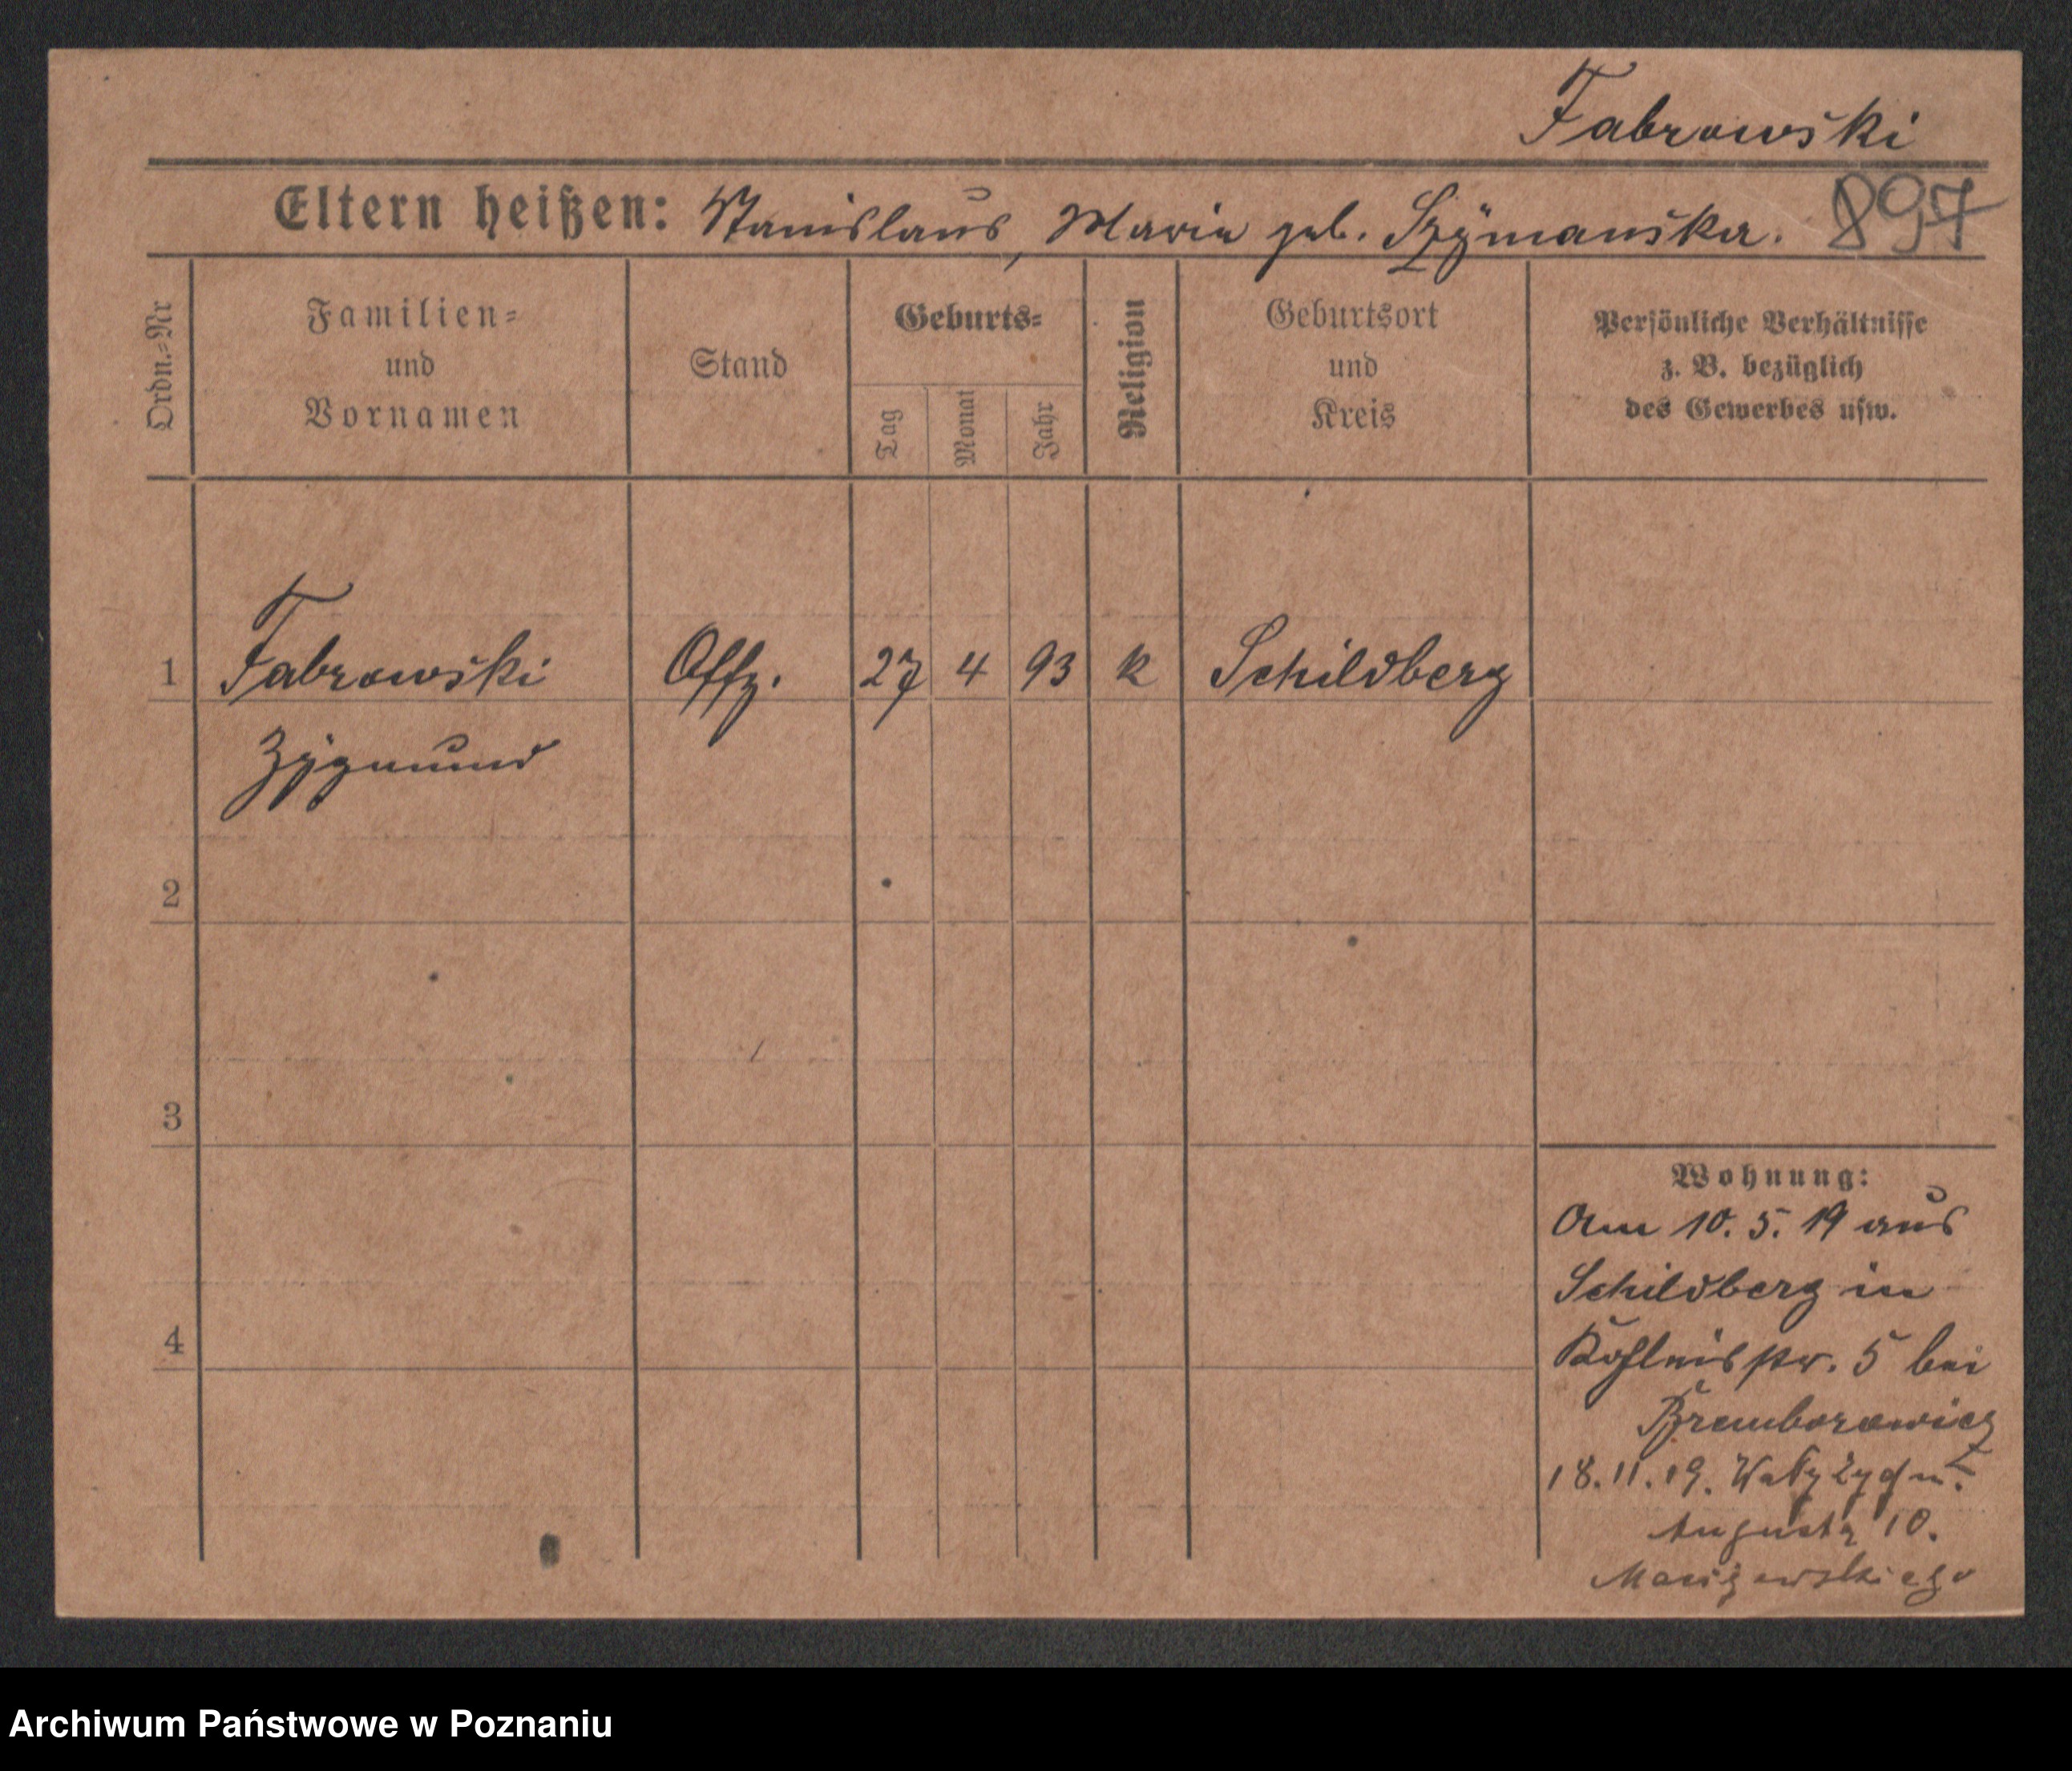 Fabrowski
Eltern heißen: Stanislaus, Maria geb. Szÿmanska.
897
Ordn.=Nr
Familien=
und
Vornamen
Stand
Geburts=
Tag
Monat
Jahr
Religion
Geburtsort
und
Kreis
Persönliche Verhältnisse
z. B. bezüglich
des Gewerbes usw.
1 Fabrowski Offz. 27 4 93 k Schildberg
Zÿgmund
2
3
4
Wohnung:
Am 10. 5. 19 aus
Schildberg in
5 bei
18.11.19. Wały Zygm.
Augusta 10.
Archiwum Państwowe w Poznaniu